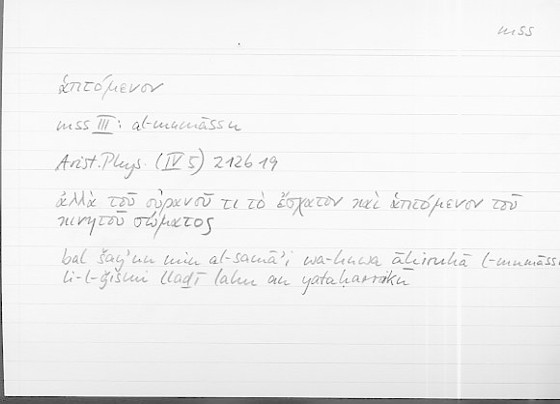 mss
ἁπτόμενον
mss III: al-mumāssu
Arist. Phys. (IV 5) 212b19
ἀλλὰ τοῦ οὐρανοῦ τι τὸ ἔσχατον καὶ ἁπτόμενον τοῦ
κινητοῦ σώματος
bal šayʾun min al-samāʾi wa-huwa āḫiruhā l-mumāssu
li-l-ǧismi llaḏī lahu an yataḥarrika